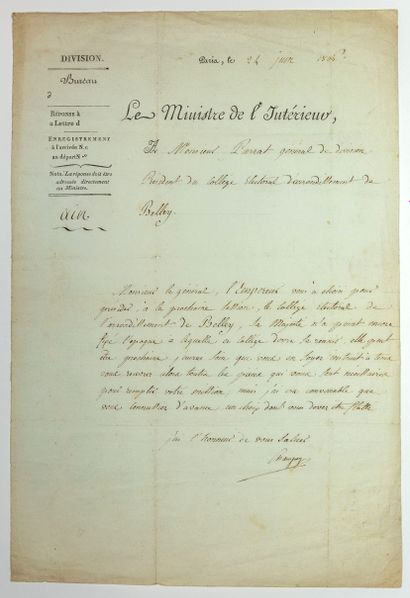 DIVISION.
Bureau
d
Réponse à
a Lettre d
ENREGISTREMENT
à l'arrivée N.o
au départ N.o
Nota. La réponse doit être
adressée directement
au Ministre.
ain
Paris, le 24
Le Ministre de l'Intérieur,
A Monsieur général de division
Président du collège électoral d'arrondissement de
Belley.
Monsieur le général, l'Empereur vous a choisi pour
présider, à la prochaine session, le collège électoral de
l'arrondissement de Belley, Sa Majesté n'a point encore
fixé l'époque à laquelle ce collège devra se réunir, elle peut
être prochaine; j'aurai soin que vous en soyez instruit à tems
vous recevrez alors toutes les pièces qui vous sont nécessaires
pour remplir votre mission, mais j'ai cru convenable que
vous connussiez d'avance un choix dont vous devez être flatté
j'ai l'honneur de vous saluer
Champagny